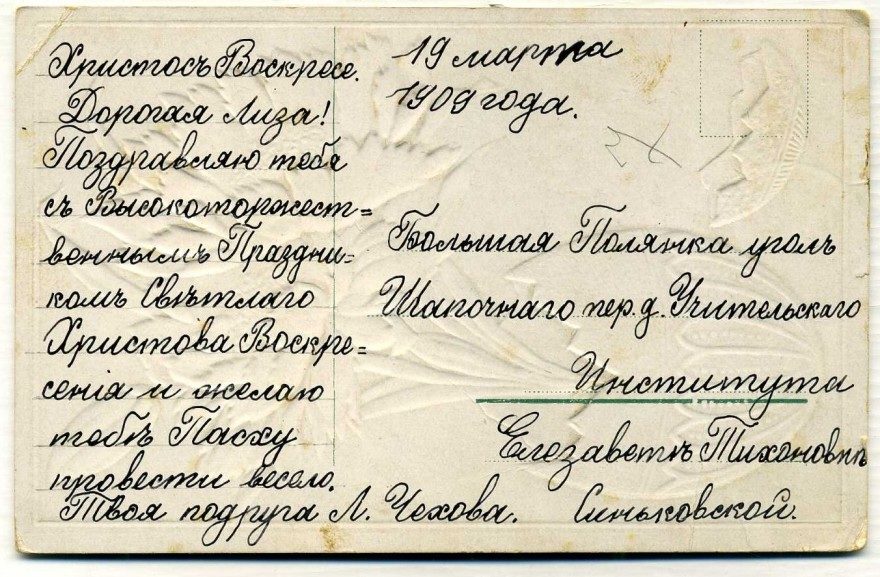 Христосъ Воскресе.
Дорогая Лиза!
Поздравляю тебя
съ Высокоторжест=
веннымъ Праздни=
комъ Свѣтлаго
Христова Воскре=
сенія и желаю
тебѣ Пасху
провести весело.
Твоя подруга Л. Чехова.
19 марта
1909 года.
Большая Полянка уголъ
Шапочнаго пер. д. Учительскаго
Института
Елезаветѣ Тихоновнѣ
Синьковской.